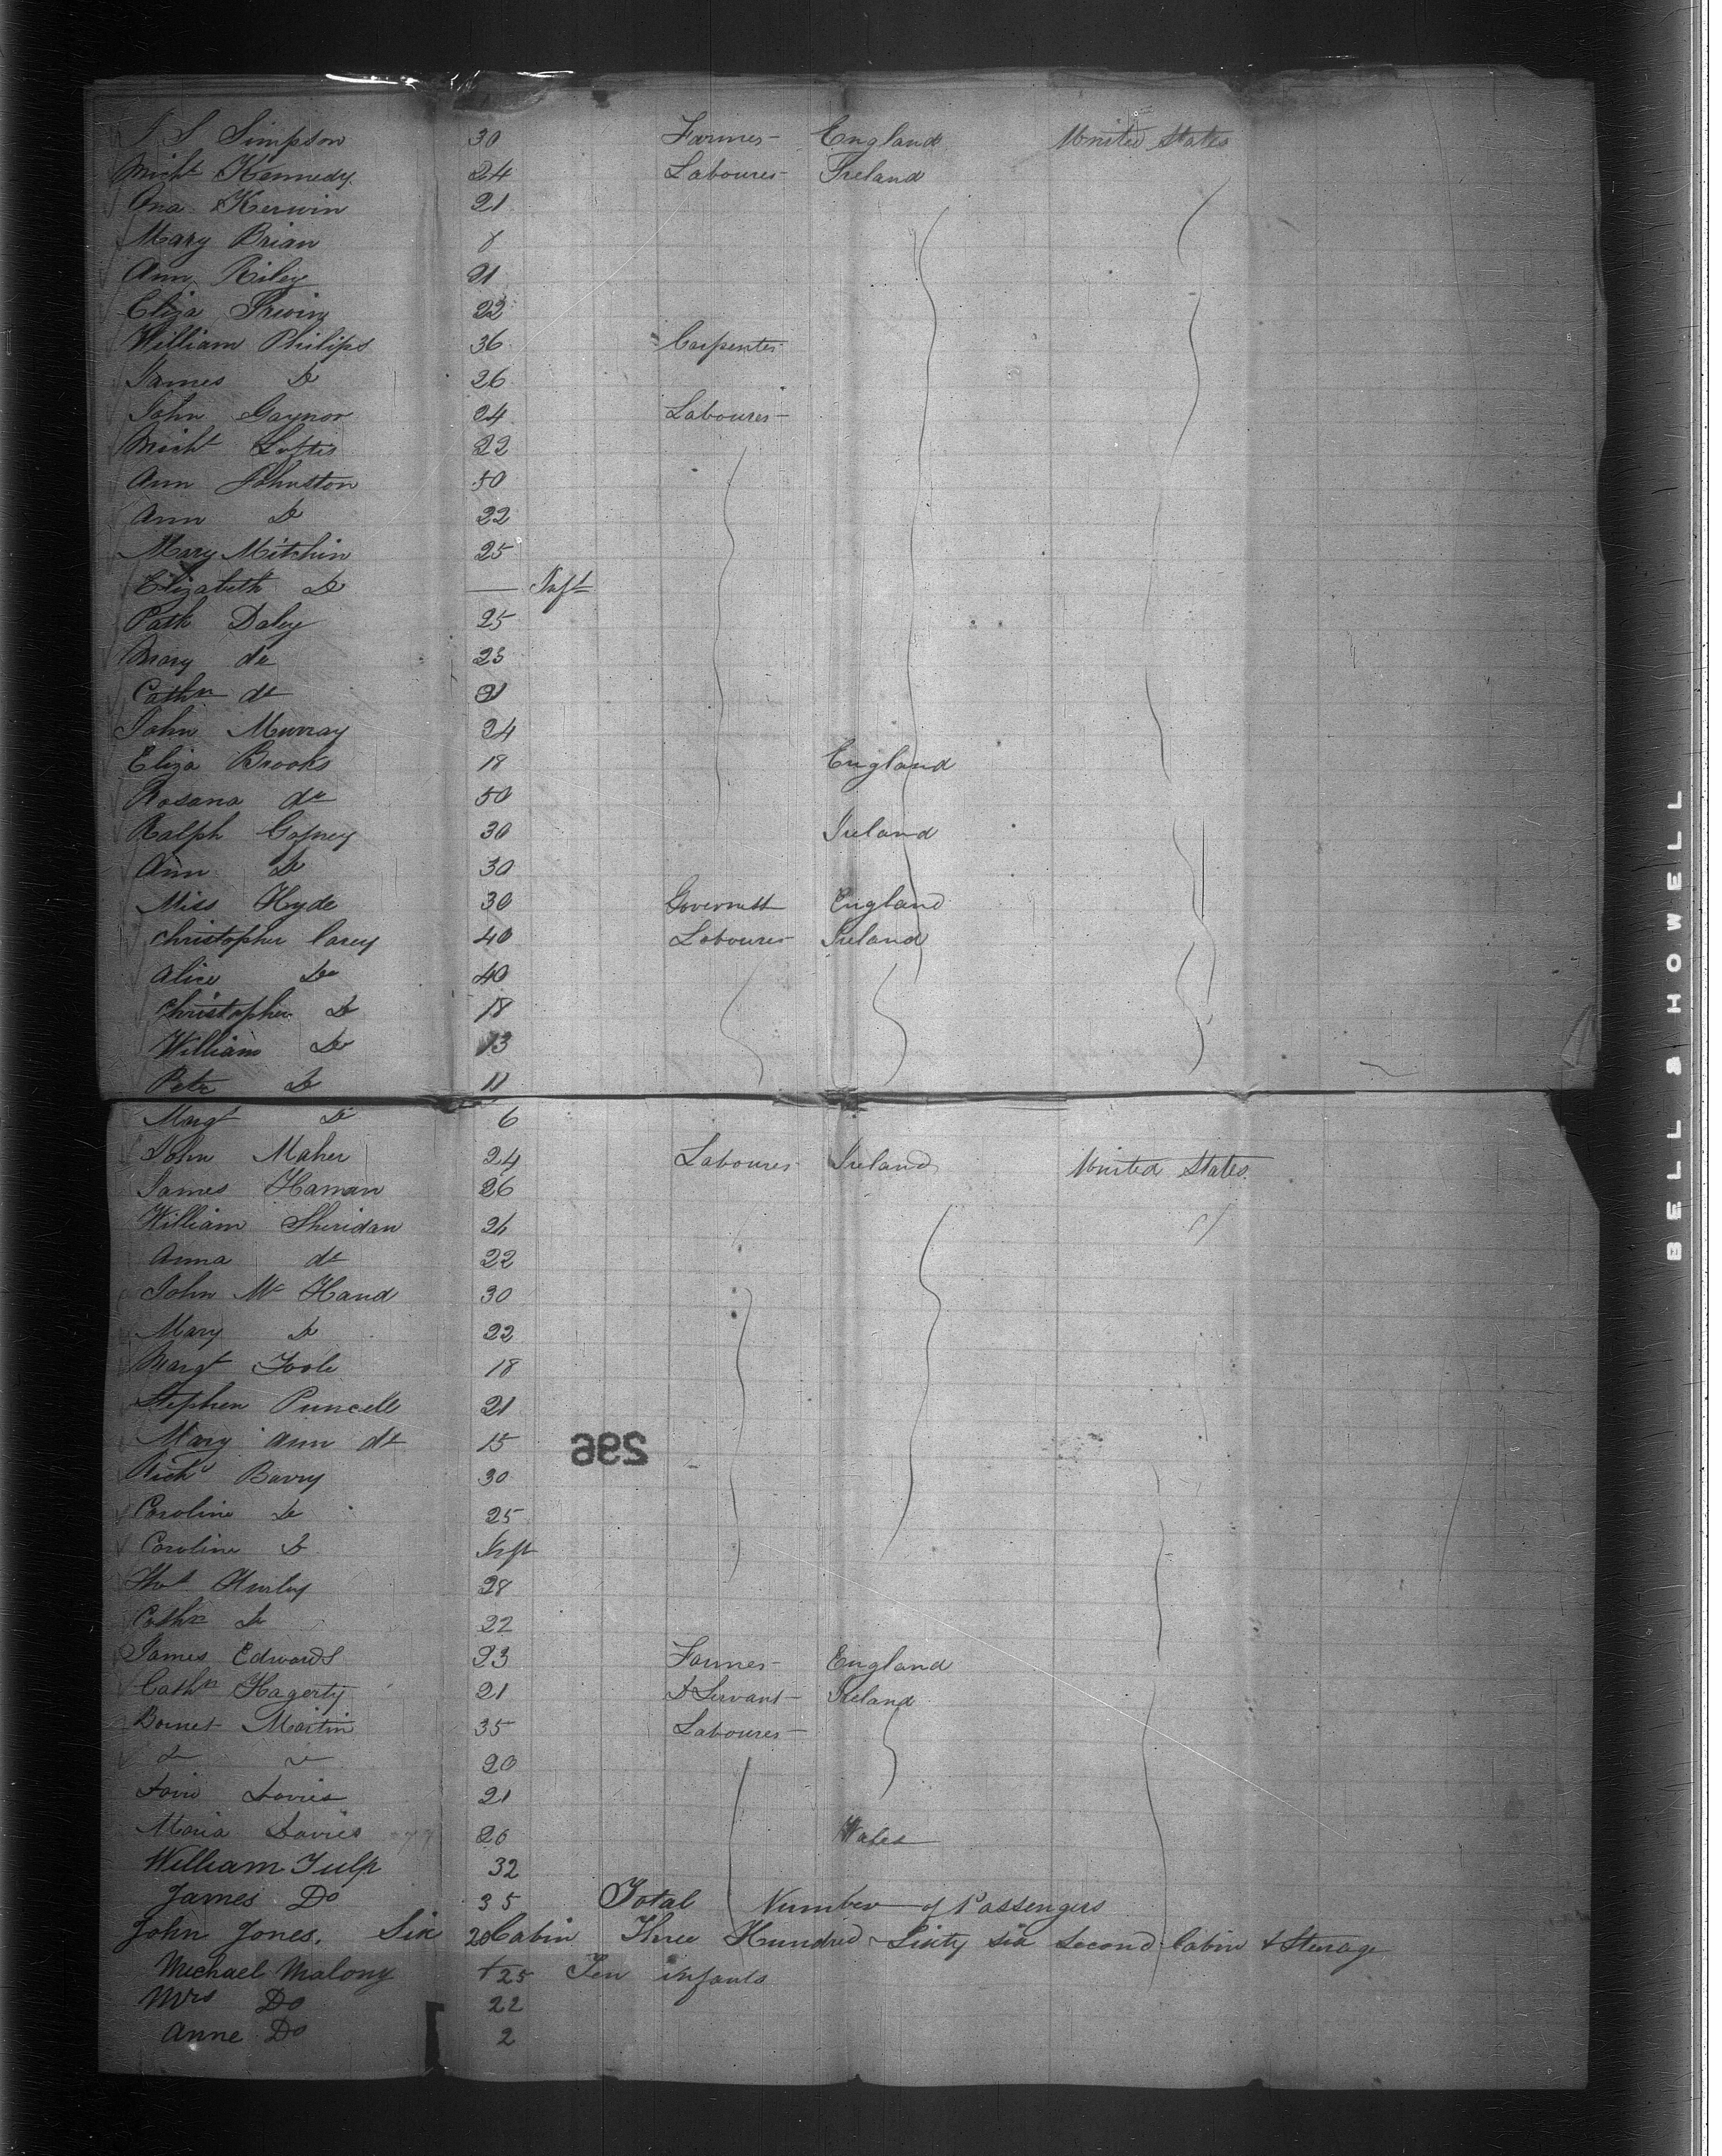 J S Simpson 30 Farmer England United States
Micht Kennedy 24 Labourer Ireland
Ana Kerwin 21
Mary Brian 8
Ann Riley 21
Eliza Irwin 22
William Philips 36 Carpenter
James Do 26
John Gaynor 24 Labourer
Micht Loftis 22
Ann Johnston 50
Ann Do 22
Mary Mitchin 25
Elizabeth Do — Inft
Patk Daley 25
Mary do 23
Cathn do
John Murray 24
Eliza Brooks 18 England
Rosana do 50
Ralph Gafney 30 Ireland
Ann Do 30
Miss Hyde 30 Governess England
Christopher Carey 40 Labourer Ireland
Alice Do 40
Christopher Do 18
William Do 13
Petr Do 11
Margt Do 6
John Maher 24 Labourer Ireland United States
James Haman 26
William Sheridan 24
Anna do 22
John Mc Hand 30
Mary Do 22
Margt Toole 18
Stephen Puncell 21
Mary Ann do 15
296
Richd Barry 30
Caroline Do 25
Caroline Do Inft
Thos Hurley 28
Cathn Do 22
James Edwards 23 Farmer England
Cathn Hagerty 21 D Servant Ireland
Martin 35 Labourer
20
Davies 21
Maria Davies 20 Wales
William Tulp 32
James Do 35 Total Number of Passengers
John Jones. 20 Six Cabin Three Hundred Sixty six Second Cabin & Sterage
Michael Malony 25 + Ten infants
Mrs Do 22
Anne Do 2
BELL & HOWELL